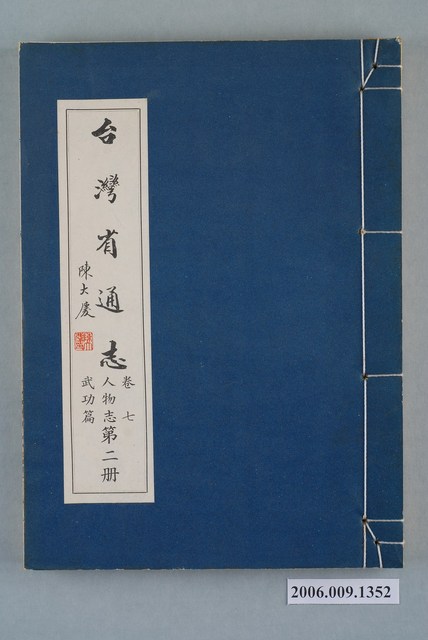 台灣省通志
陳大慶
卷七
人物志第二册
武功篇
2006.009.1352